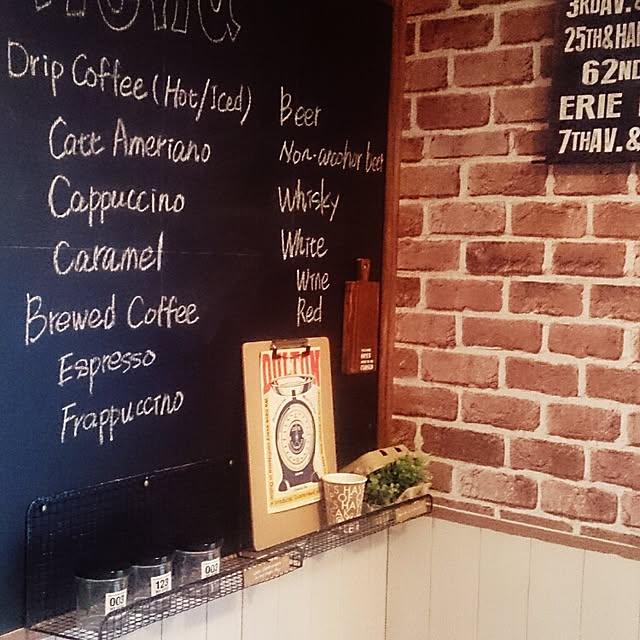 Drip Coffee (Hot/Iced)
Catt Ameriano
Cappuccino
Caramel
Brewed Coffee
Espresso
Frappuccino
Beer
Non-arcohor beer
Whisky
White
Wine
Red
DOLTON
003
123
003
3RD AV. &
25TH & HA
62ND
ERIE
7TH AV. &